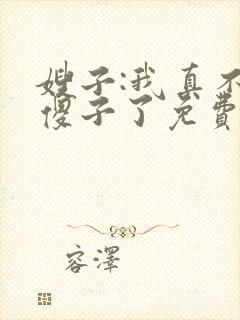 嫂子:我真不
傻子了免费
容泽